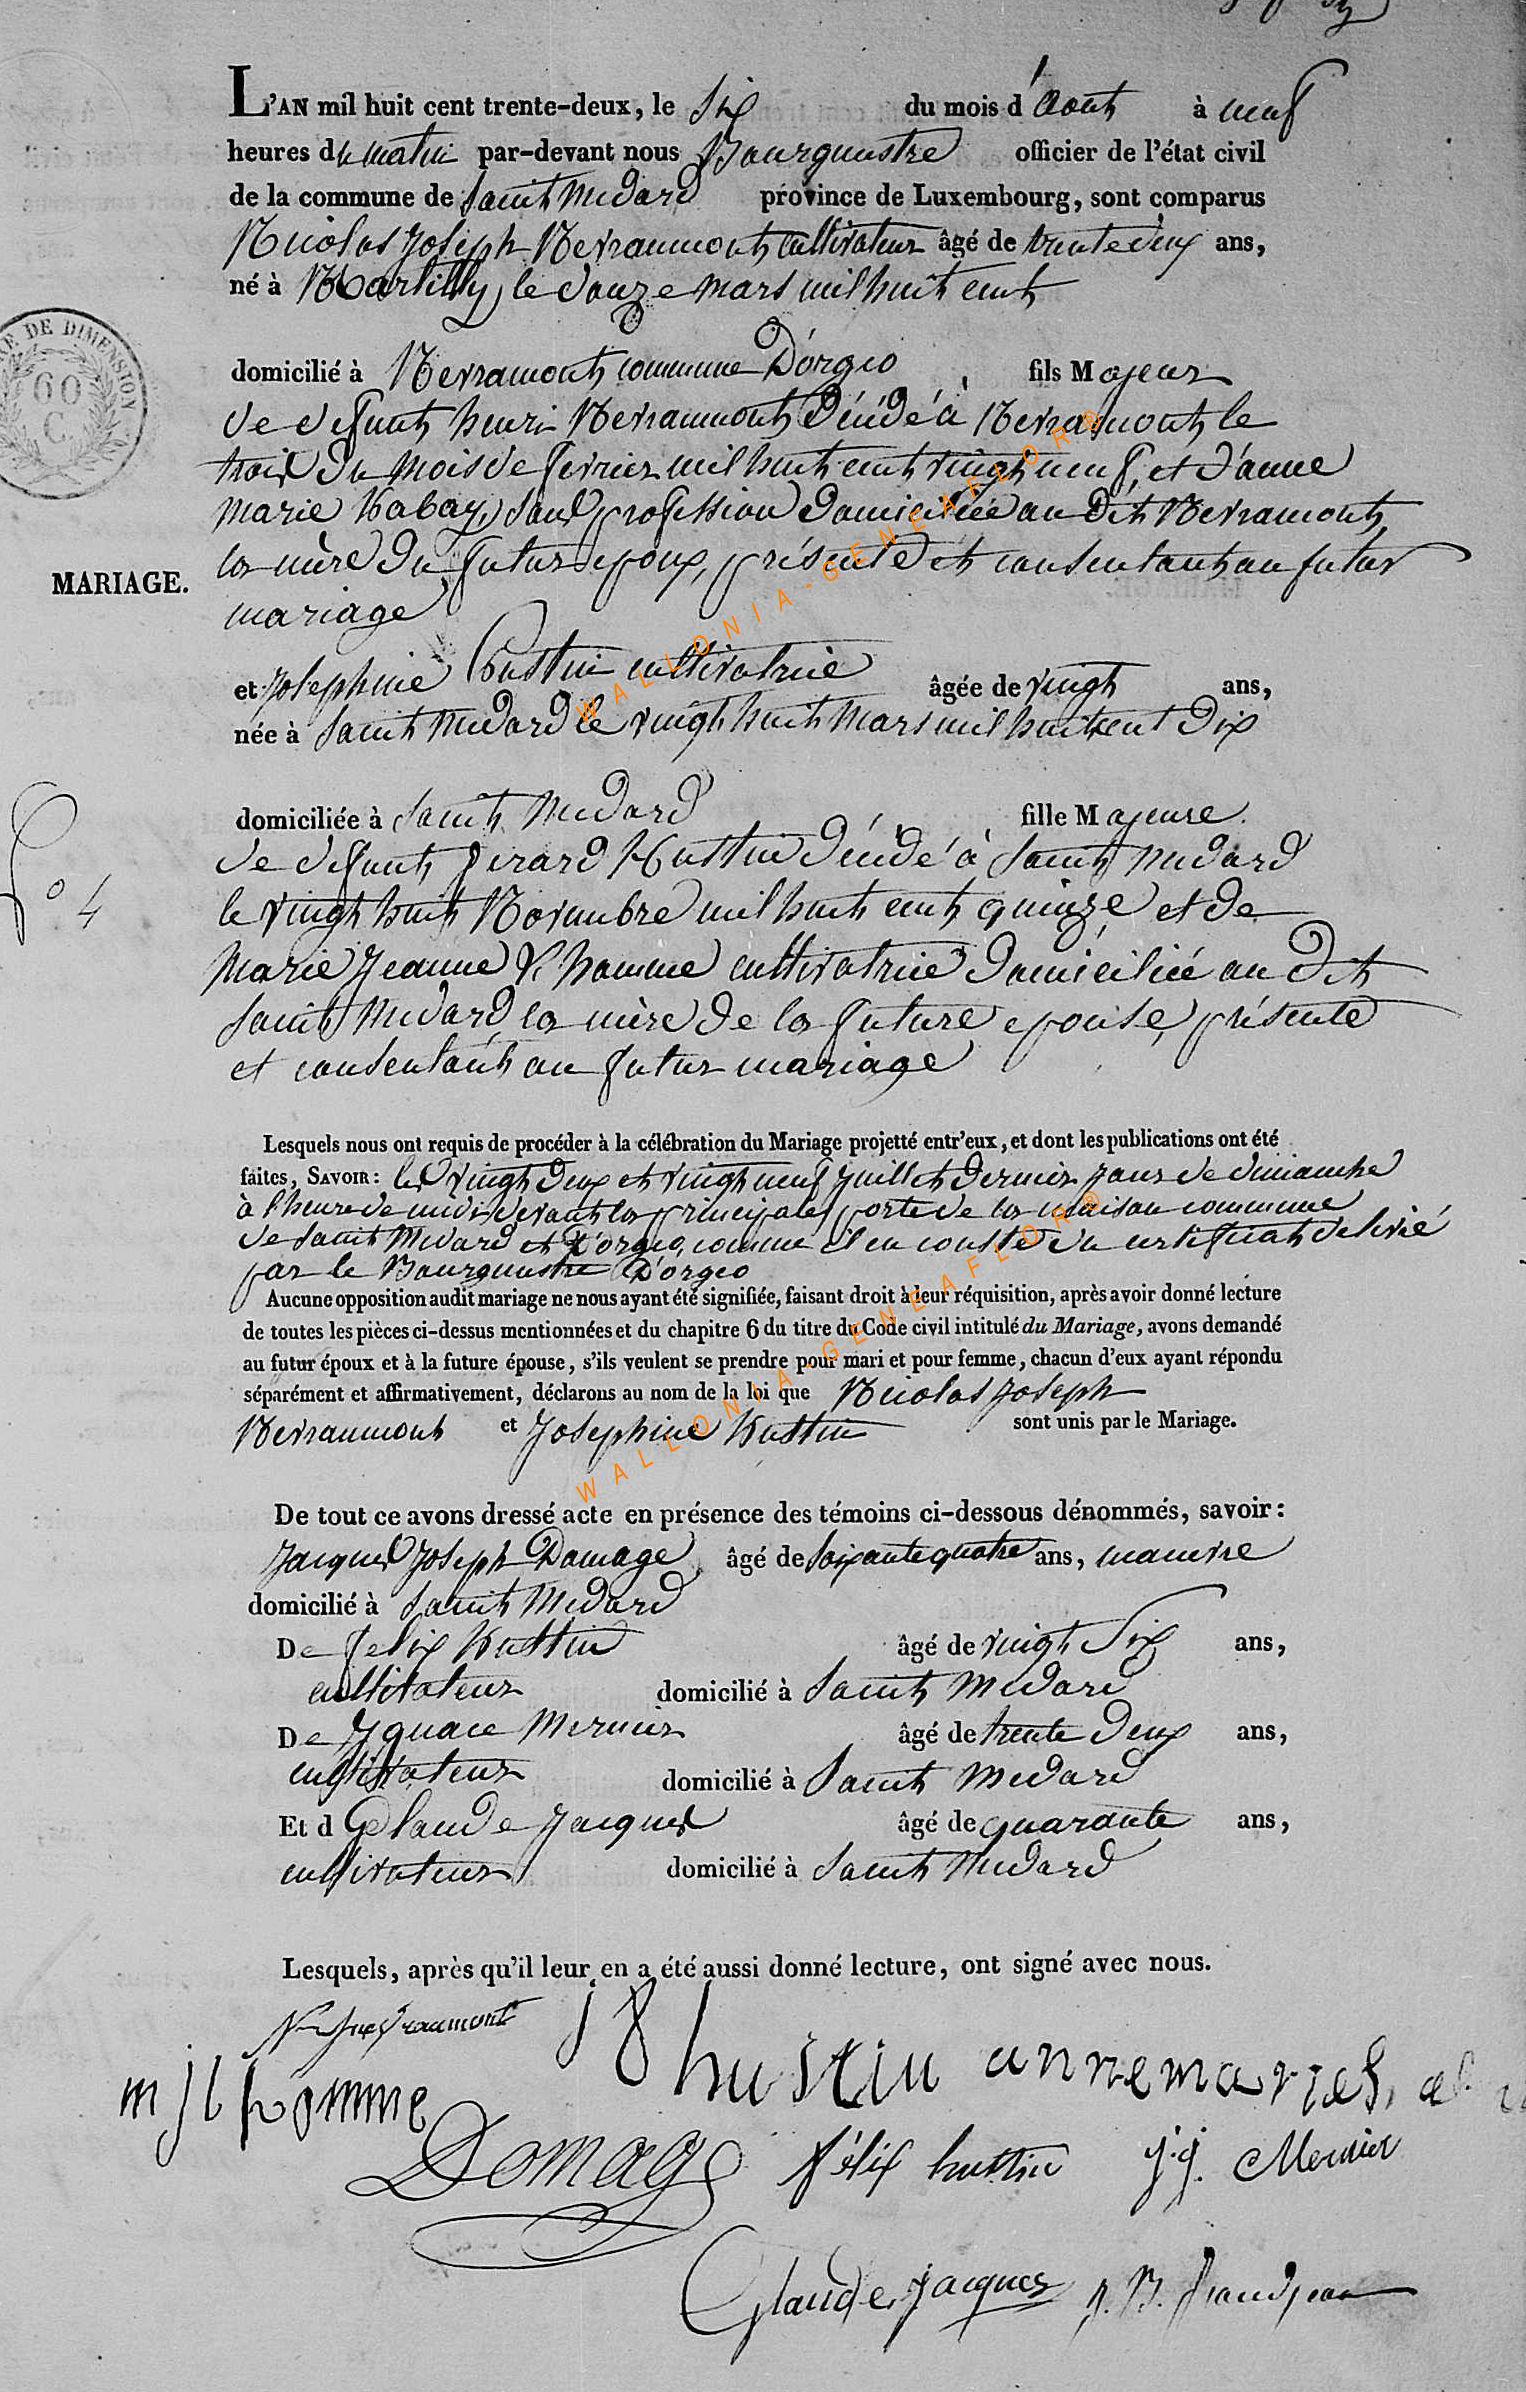 L'AN mil huit cent trente-deux, le six du mois d'Aout à neuf
heures du matin par-devant nous Bourguestre officier de l'état civil
de la commune de Saint Medard province de Luxembourg, sont comparus
Nicolas Joseph Nevraumont cultivateur âgé de trente deux ans,
né à Martilly le douze mars mil huit cent
RE DE DIMENSION
60
C.
domicilié à Nevramont commune D'orgeo fils Majeur
de defunt henri Nevraumont décédé à Nevramont le
trois du mois de fevrier mil huit cent vingt neuf, et d'anne
marie habay, sans profession domiciliée au dit Nevramont,
la mère du futur epoux, présente et consentant au futur
MARIAGE.
mariage
et Josephine hustin cultivatrice âgée de vingt ans,
née à Saint Medard le vingt huit mars mil huit cent dix
domiciliée à Saint Medard fille Majeure.
de defunt gerard hustin décédé à Saint Medard
le vingt huit Novembre mil huit cent quinze et de
N° 4
Marie Jeanne L'homme cultivatrice domiciliée au dit
Saint Medard la mère de la future epouse, présente
et consentant au futur mariage
Lesquels nous ont requis de procéder à la célébration du Mariage projetté entr'eux, et dont les publications ont été
faites, SAVOIR: les vingt deux et vingt neuf Juillet dernier jour de dimanche
à l'heure de midi devant la principale porte de la maison commune
de Saint Medard et D'orgeo, comme il en conste du certificat delivré
par le Bourguestre D'orgeo
Aucune opposition audit mariage ne nous ayant été signifiée, faisant droit à leur réquisition, après avoir donné lecture
de toutes les pièces ci-dessus mentionnées et du chapitre 6 du titre du Code civil intitulé du Mariage, avons demandé
au futur époux et à la future épouse, s'ils veulent se prendre pour mari et pour femme, chacun d'eux ayant répondu
séparément et affirmativement, déclarons au nom de la loi que Nicolas Joseph
Nevraumont et Josephine hustin sont unis par le Mariage.
De tout ce avons dressé acte en présence des témoins ci-dessous dénommés, savoir:
Jacques Joseph Domage âgé de soixante quatre ans,
domicilié à Saint Medard
De felix hustin âgé de vingt six ans,
cultivateur domicilié à Saint Medard
De Ignace Mernier âgé de trente deux ans,
cultivateur domicilié à Saint Medard
Et d Claude Jacques âgé de quarante ans,
cultivateur domicilié à Saint Medard
Lesquels, après qu'il leur en a été aussi donné lecture, ont signé avec nous.
hustin anne marie
m j l homme
Domage félix hustin j. j. Mernier
Claude jacques J. B. Grandjean
WALLONIA-GENEAFLOR®
WALLONIA-GENEAFLOR®